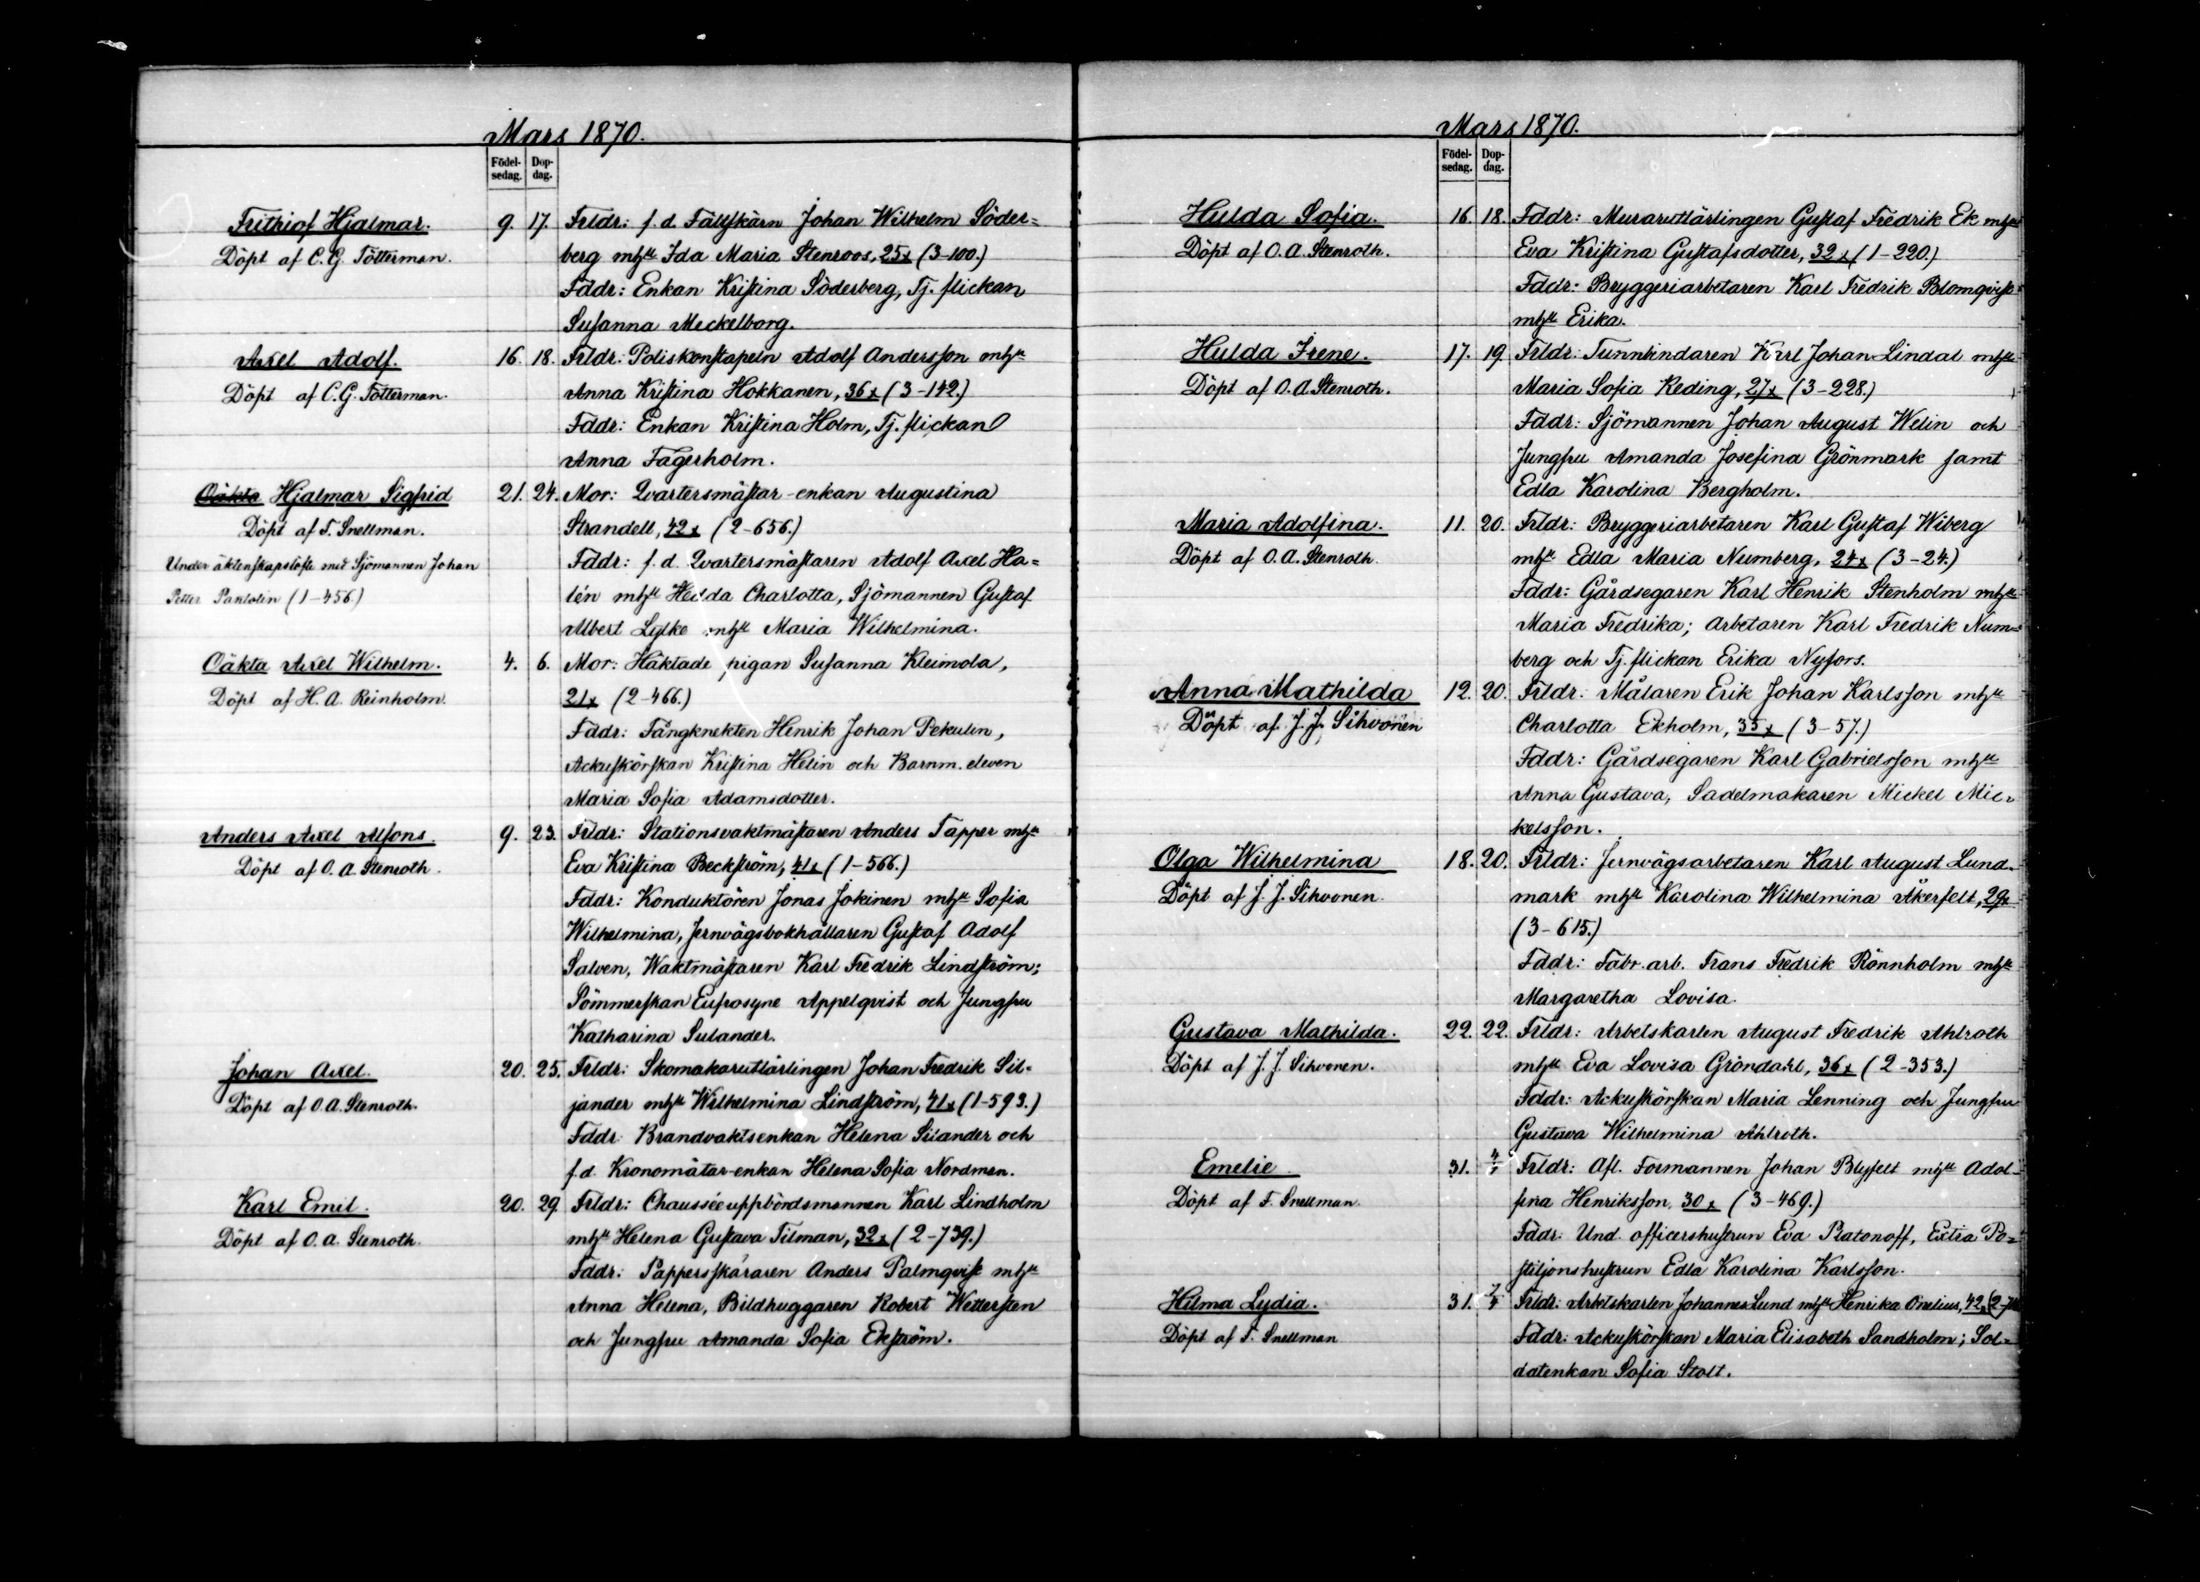 Mars 1870.
Födel-
sedag.
Dop-
dag.
Frithiof Hjalmar.
Döpt af C. G. Tötterman.
9. 17. Frldr: f. d. Fältskärn Johan Wilhelm Söder=
berg mhu Ida Maria Stenroos, 25x (3-100.)
Fddr: Enkan Kristina Söderberg, Tj. flickan
Susanna Meckelborg.
Axel Adolf.
Döpt af C. G. Tötterman.
16. 18. Frldr: Poliskonstapeln Adolf Andersson mhu
Anna Kristina Hokkanen, 36x (3-142.)
Fddr: Enkan Kristina Holm, Tj. flickan
Anna Fagerholm.
Oäkta Hjalmar Sigfrid
Döpt af F. Snellman.
Under äktenskapslöfte med Sjömannen Johan
Petter Pantolin (1-456)
21. 24. Mor: Qvartersmästar-enkan Augustina
Strandell, 42x (2-656.)
Fddr: f. d. Qvartersmästaren Adolf Axel Ha=
lén mhu Hedda Charlotta, Sjömannen Gustaf
Albert Lylke mhu Maria Wilhelmina.
Oäkta Axel Wilhelm.
Döpt af H. A. Reinholm.
4. 6. Mor: Häktade pigan Susanna Kleimola,
21x (2-466.)
Fddr: Fångknekten Henrik Johan Pekulin,
Ackuskörskan Kristina Helin och Barnm. eleven
Maria Sofia Adamsdotter.
Anders Axel Alfons.
Döpt af O. A. Stenroth.
9. 23. Frldr: Stationsvaktmästaren Anders Tapper mhu
Eva Kristina Beckström, 41x (1-566.)
Fddr: Konduktören Jonas Jokinen mhu Sofia
Wilhelmina, Jernvägsbokhållaren Gustaf Adolf
Salven, Waktmästaren Karl Fredrik Lindström;
Sömmerskan Eufrosyne Appelqvist och Jungfru
Katharina Sulander.
Johan Axel.
Döpt af O. A. Stenroth.
20. 25. Frldr: Skomakareutlärlingen Johan Fredrik Sil=
jander mhu Wilhelmina Lindström, 41x (1-593.)
Fddr: Brandvaktsenkan Helena Silander och
f. d. Kronomätar-enkan Helena Sofia Nordman.
Karl Emil.
Döpt af O. A. Stenroth.
20. 29. Frldr: Chausséeuppbördsmannen Karl Lindholm
mhu Helena Gustava Tilman, 32x (2-739.)
Fddr: Pappersskäraren Anders Palmqvist mhu
Anna Helena, Bildhuggaren Robert Wettersten
och Jungfru Amanda Sofia Ekström.
Mars 1870.
Födel-
sedag.
Dop-
dag.
Hulda Sofia.
Döpt af O. A. Stenroth.
16. 18. Fddr: Murareutlärlingen Gustaf Fredrik Ek mhu
Eva Kristina Gustafsdotter, 32x (1-220.)
Fddr: Bryggeriarbetaren Karl Fredrik Blomqvist
mhu Erika.
Hulda Irene.
Döpt af O. A. Stenroth.
17. 19. Frldr: Tunnbindaren Karl Johan Lindal mhu
Maria Sofia Reding, 27x (3-228.)
Fddr: Sjömannen Johan August Welin och
Jungfru Amanda Josefina Grönmark samt
Edla Karolina Bergholm.
Maria Adolfina.
Döpt af O. A. Stenroth.
11. 20. Frldr: Bryggeriarbetaren Karl Gustaf Wiberg
mhu Edla Maria Numberg, 24x (3-24.)
Fddr: Gårdsegaren Karl Henrik Stenholm mhu
Maria Fredrika; Arbetaren Karl Fredrik Num=
berg och Tj. flickan Erika Nyfors.
Anna Mathilda
Döpt af J. J. Sihvonen
12. 20. Frldr: Målaren Erik Johan Karlsson mhu
Charlotta Ekholm, 35x (3-57.)
Fddr: Gårdsegaren Karl Gabrielsson mhu
Anna Gustava, Sadelmakaren Mickel Mic=
kelsson.
Olga Wilhelmina
Döpt af J. J. Sihvonen.
18. 20. Frldr: Jernvägsarbetaren Karl August Lund=
mark mhu Karolina Wilhelmina Åkerfelt, 29x
(3-615.)
Fddr: Fabr. arb. Frans Fredrik Rönnholm mhu
Margaretha Lovisa.
Gustava Mathilda.
Döpt af J. J. Sihvonen.
22. 22. Frldr: Arbetskarlen August Fredrik Ahlroth
mhu Eva Lovisa Gröndahl, 36x (2-353.)
Fddr: Ackuskörskan Maria Lenning och Jungfru
Gustava Wilhelmina Ahlroth.
Emelie
Döpt af F. Snellman.
31. Frldr: Afl. Formannen Johan Blyfelt mhu Adol=
fina Henriksson, 30x (3-469.)
Fddr: Und. officershustrun Eva Platonoff, Extra Po=
stiljonshustrun Edla Karolina Karlsson.
Hilma Lydia.
Döpt af F. Snellman
31. Frldr: Arbetskarlen Johannes Lund mhu Henrika Onelius, 42x
Fddr: Ackuskörskan Maria Elisabeth Sandholm; Sol=
datenkan Sofia Stolt.